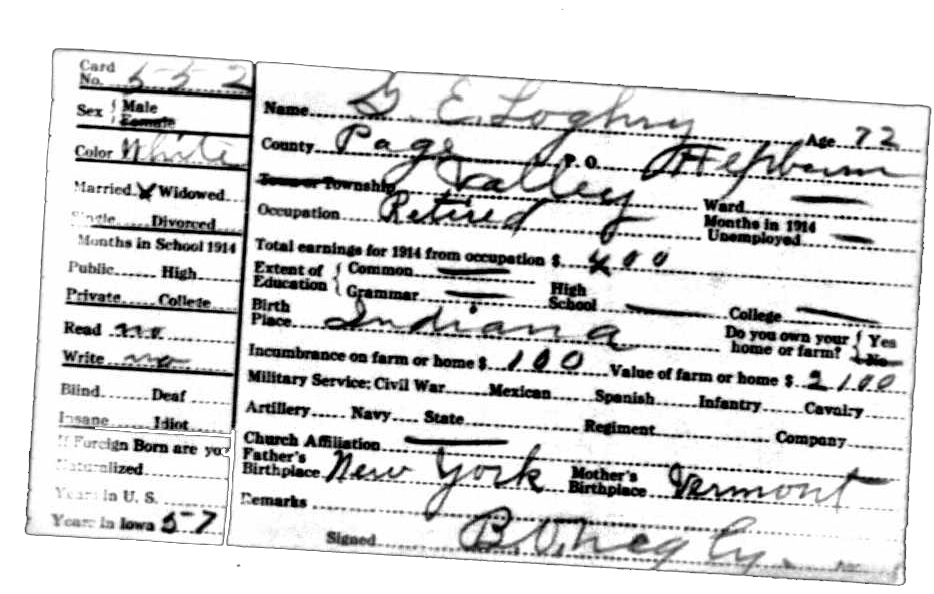 Card No. 552
Sex Male Female
Color White
Married X Widowed
Single Divorced
Months in School 1914
Public High
Private College
Read no
Write no
Blind Deaf
Insane Idiot
If Foreign Born are you
Naturalized
Years in U. S.
Years in Iowa 57
Name E. Loghry Age 72
County Page P. O. Hepburn
Town or Township Valley Ward
Occupation Retired Months in 1914 Unemployed
Total earnings for 1914 from occupation $ 400
Extent of Education Common Grammar High School College
Birth Place Indiana Do you own your home or farm? Yes No
Incumbrance on farm or home $ 100 Value of farm or home $ 2100
Military Service: Civil War Mexican Spanish Infantry Cavalry
Artillery Navy State Regiment Company
Church Affiliation
Father's Birthplace New York Mother's Birthplace Vermont
Remarks
Signed B. O. Negly